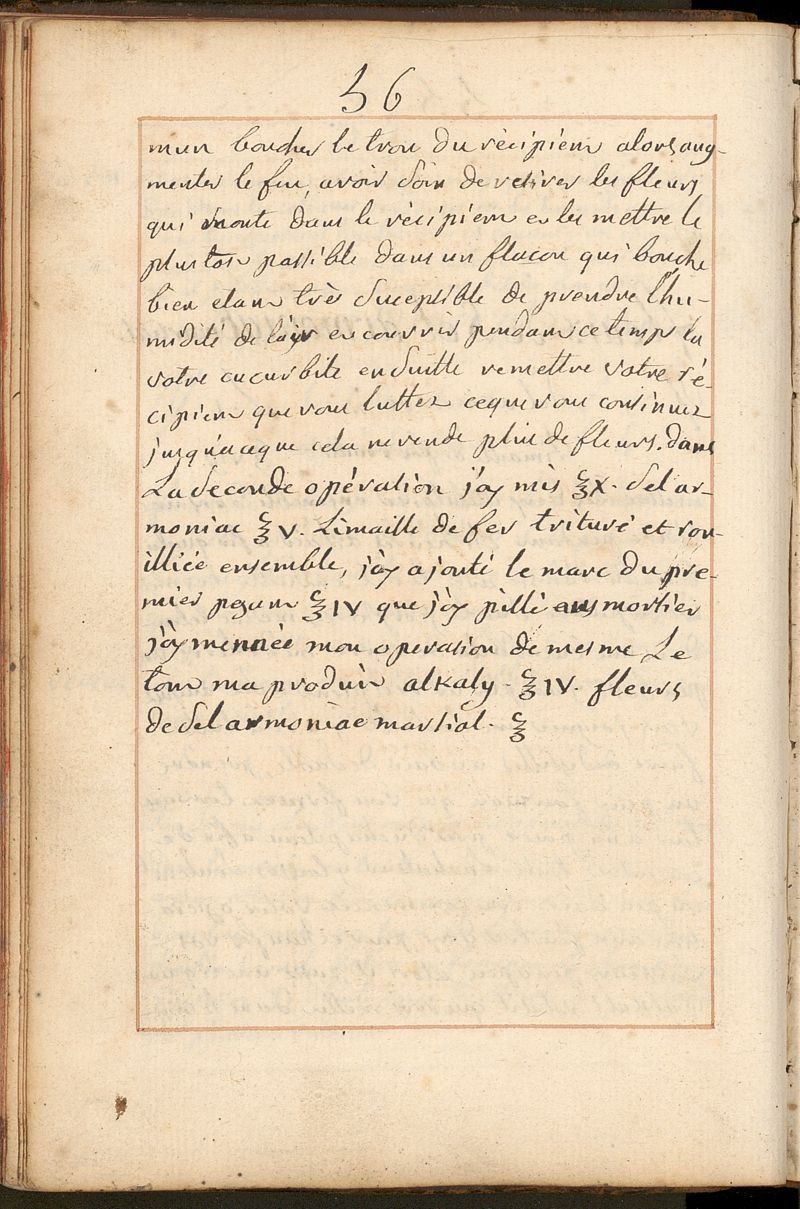 56
mun boucher le trou du récipiem alors aug-
menter le feu, avoir soin de retirer les fleurs
qui monte dans le récipiem et les mettre le
plustost passible dans un flacon qui bouche
bien etam très suceptible de prendre l'hu-
midité de láir en couvrir pendam ce temps la
votre cucurbite en suitte remettre votre ré-
cipiem que vous luttez ceque vous continuez
jusqúa ceque cela ne rende plus de fleurs. dans
La seconde opération j'áy mis ℥X. sel ar-
moniac ℥V. Limaille de fer trituré et rou-
illiée ensemble, j'áy ajouté le marc du pre-
mier pezam ℥IV que j'áy pillé au mortier
j'áy mennée mon operasion de mesme Le
tout ma produit alkaly. ℥IV. fleurs
de sel armoniac martial. ℥